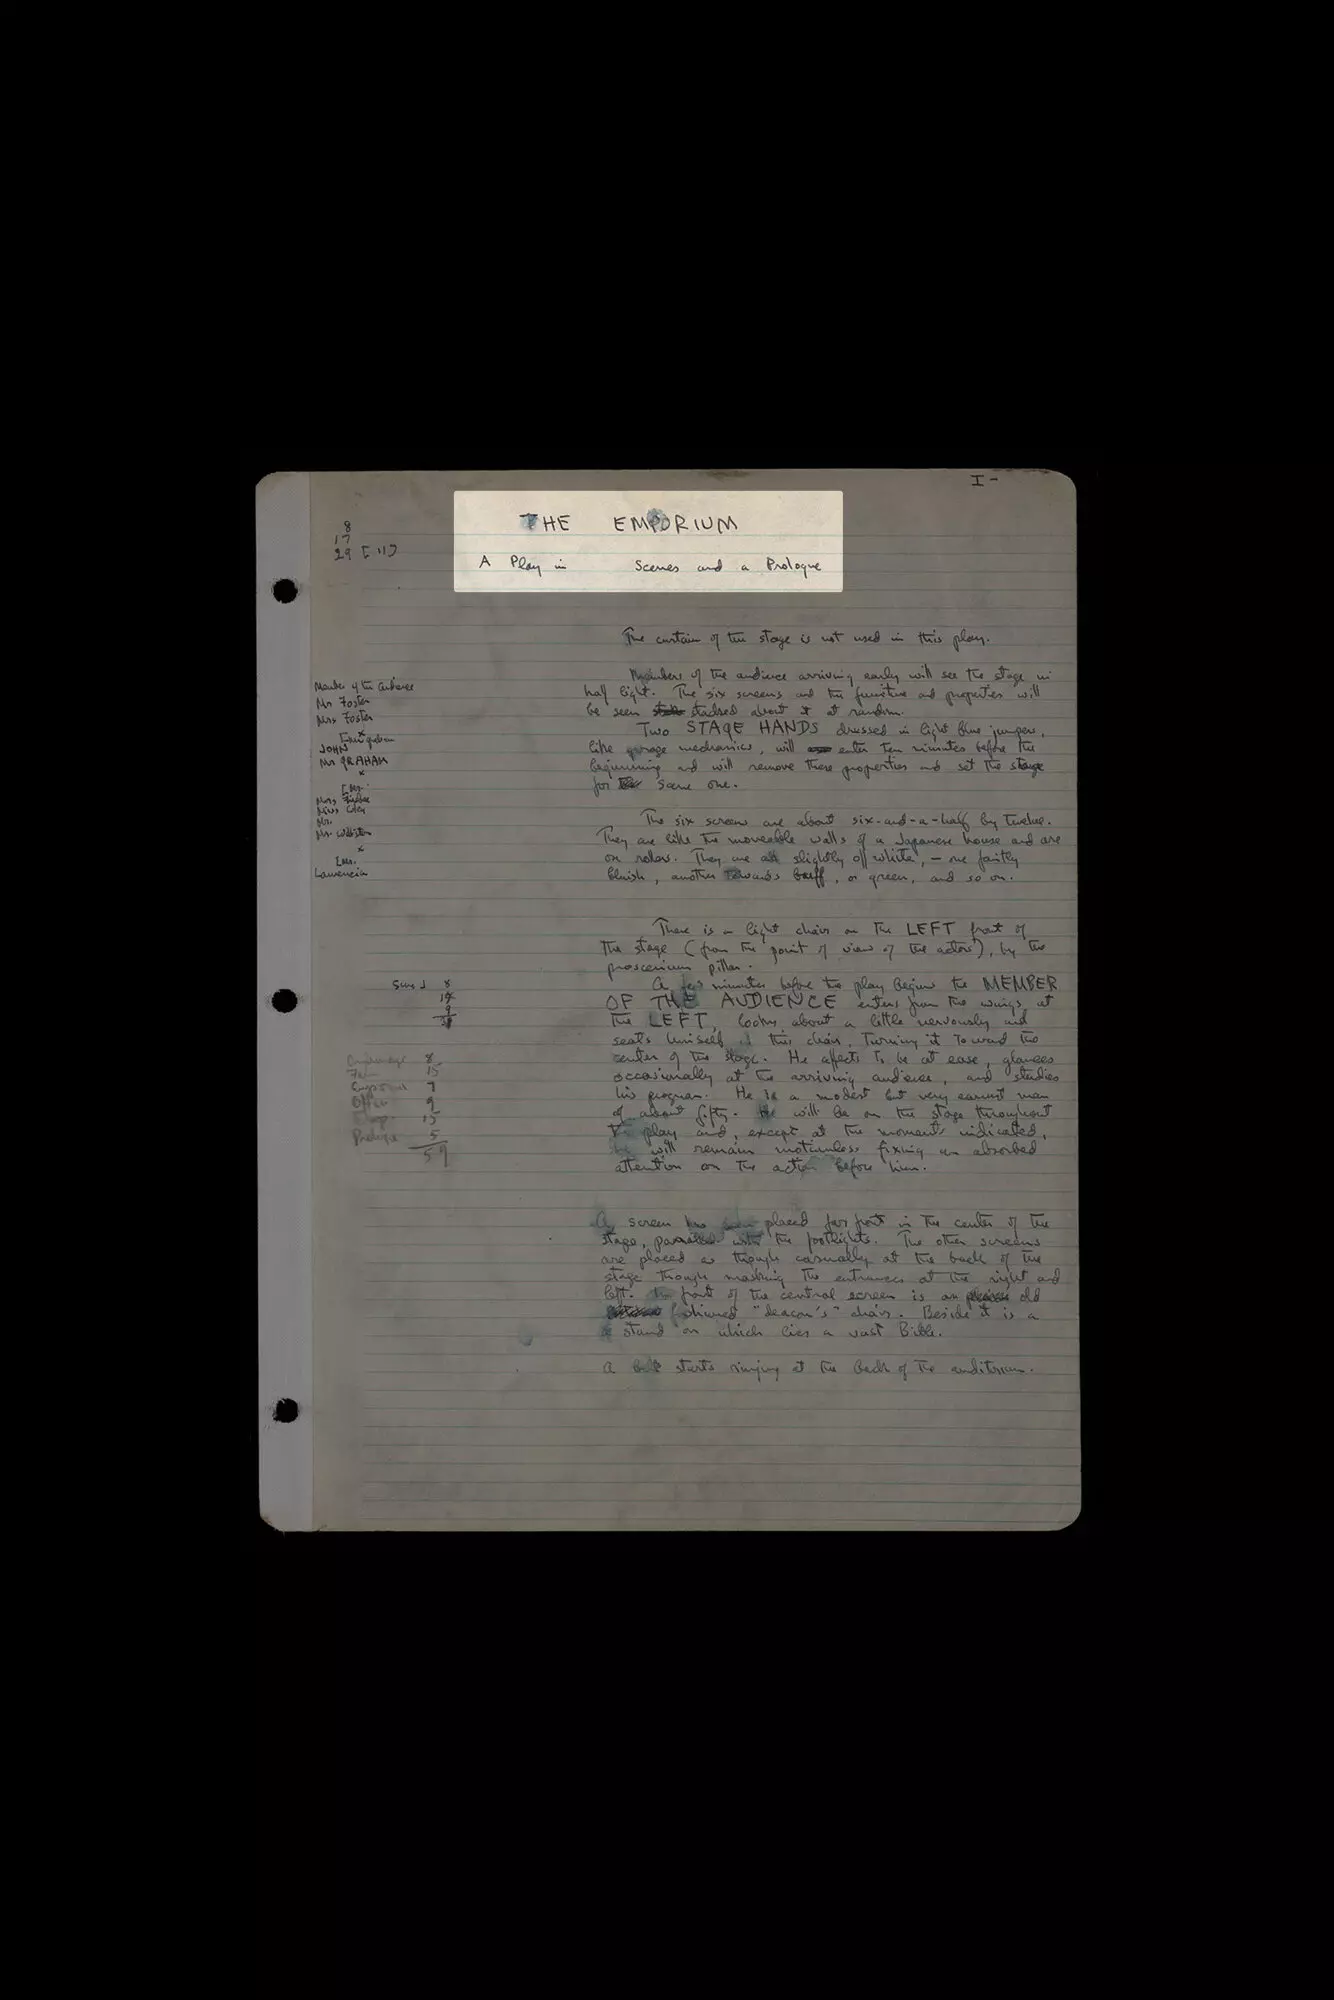 I-
THE EMPORIUM
A Play in Scenes and a Prologue
8
17
29 [11]
The curtain of the stage is not used in this play.
Members of the audience arriving early will see the stage in
half light. The six screens and the furniture and properties will
be seen stacked about it at random.
Two STAGE HANDS dressed in light blue jumpers,
like garage mechanics, will enter ten minutes before the
beginning and will remove these properties and set the stage
for Scene one.
Member of the Audience
Mr Foster
Mrs Foster
JOHN
Mr GRAHAM
x
Mr.
x
Laurencia
The six screens are about six-and-a-half by twelve.
They are like the moveable walls of a Japanese house and are
on rollers. They are all slightly off white, – one faintly
bluish, another towards buff, or green, and so on.
There is a light chair on the LEFT front of
the stage (from the point of view of the actors), by the
proscenium pillar.
A few minutes before the play begins the MEMBER
OF THE AUDIENCE enters from the wings at
the LEFT, looks about a little nervously and
seats himself in this chair, turning it toward the
center of the stage. He affects to be at ease, glances
occasionally at the arriving audience, and studies
his program. He is a modest but very earnest man
of about fifty. He will be on the stage throughout
the play and, except at the moments indicated,
he will remain motionless fixing an absorbed
attention on the action before him.
8
9
Orphanage 8
15
7
Office 9
15
Prologue 5
59
A screen has been placed far front in the center of the
stage, parallel with the footlights. The other screens
are placed as though casually at the back of the
stage though masking the entrances at the right and
left. In front of the central screen is an old
fashioned "deacon's" chair. Beside it is a
stand on which lies a vast Bible.
A bell starts ringing at the back of the auditorium.